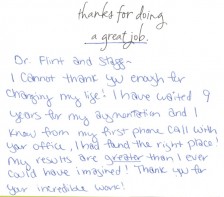 thanks for doing
a great job.
Dr. Flint and Stagg~
I cannot thank you enough for
changing my life! I have waited 9
years for my augmentation and I
know from my first phone call with
your office, I had found the right place!
my results are greater than I ever
could have imagined! Thank you for
your incredible work!